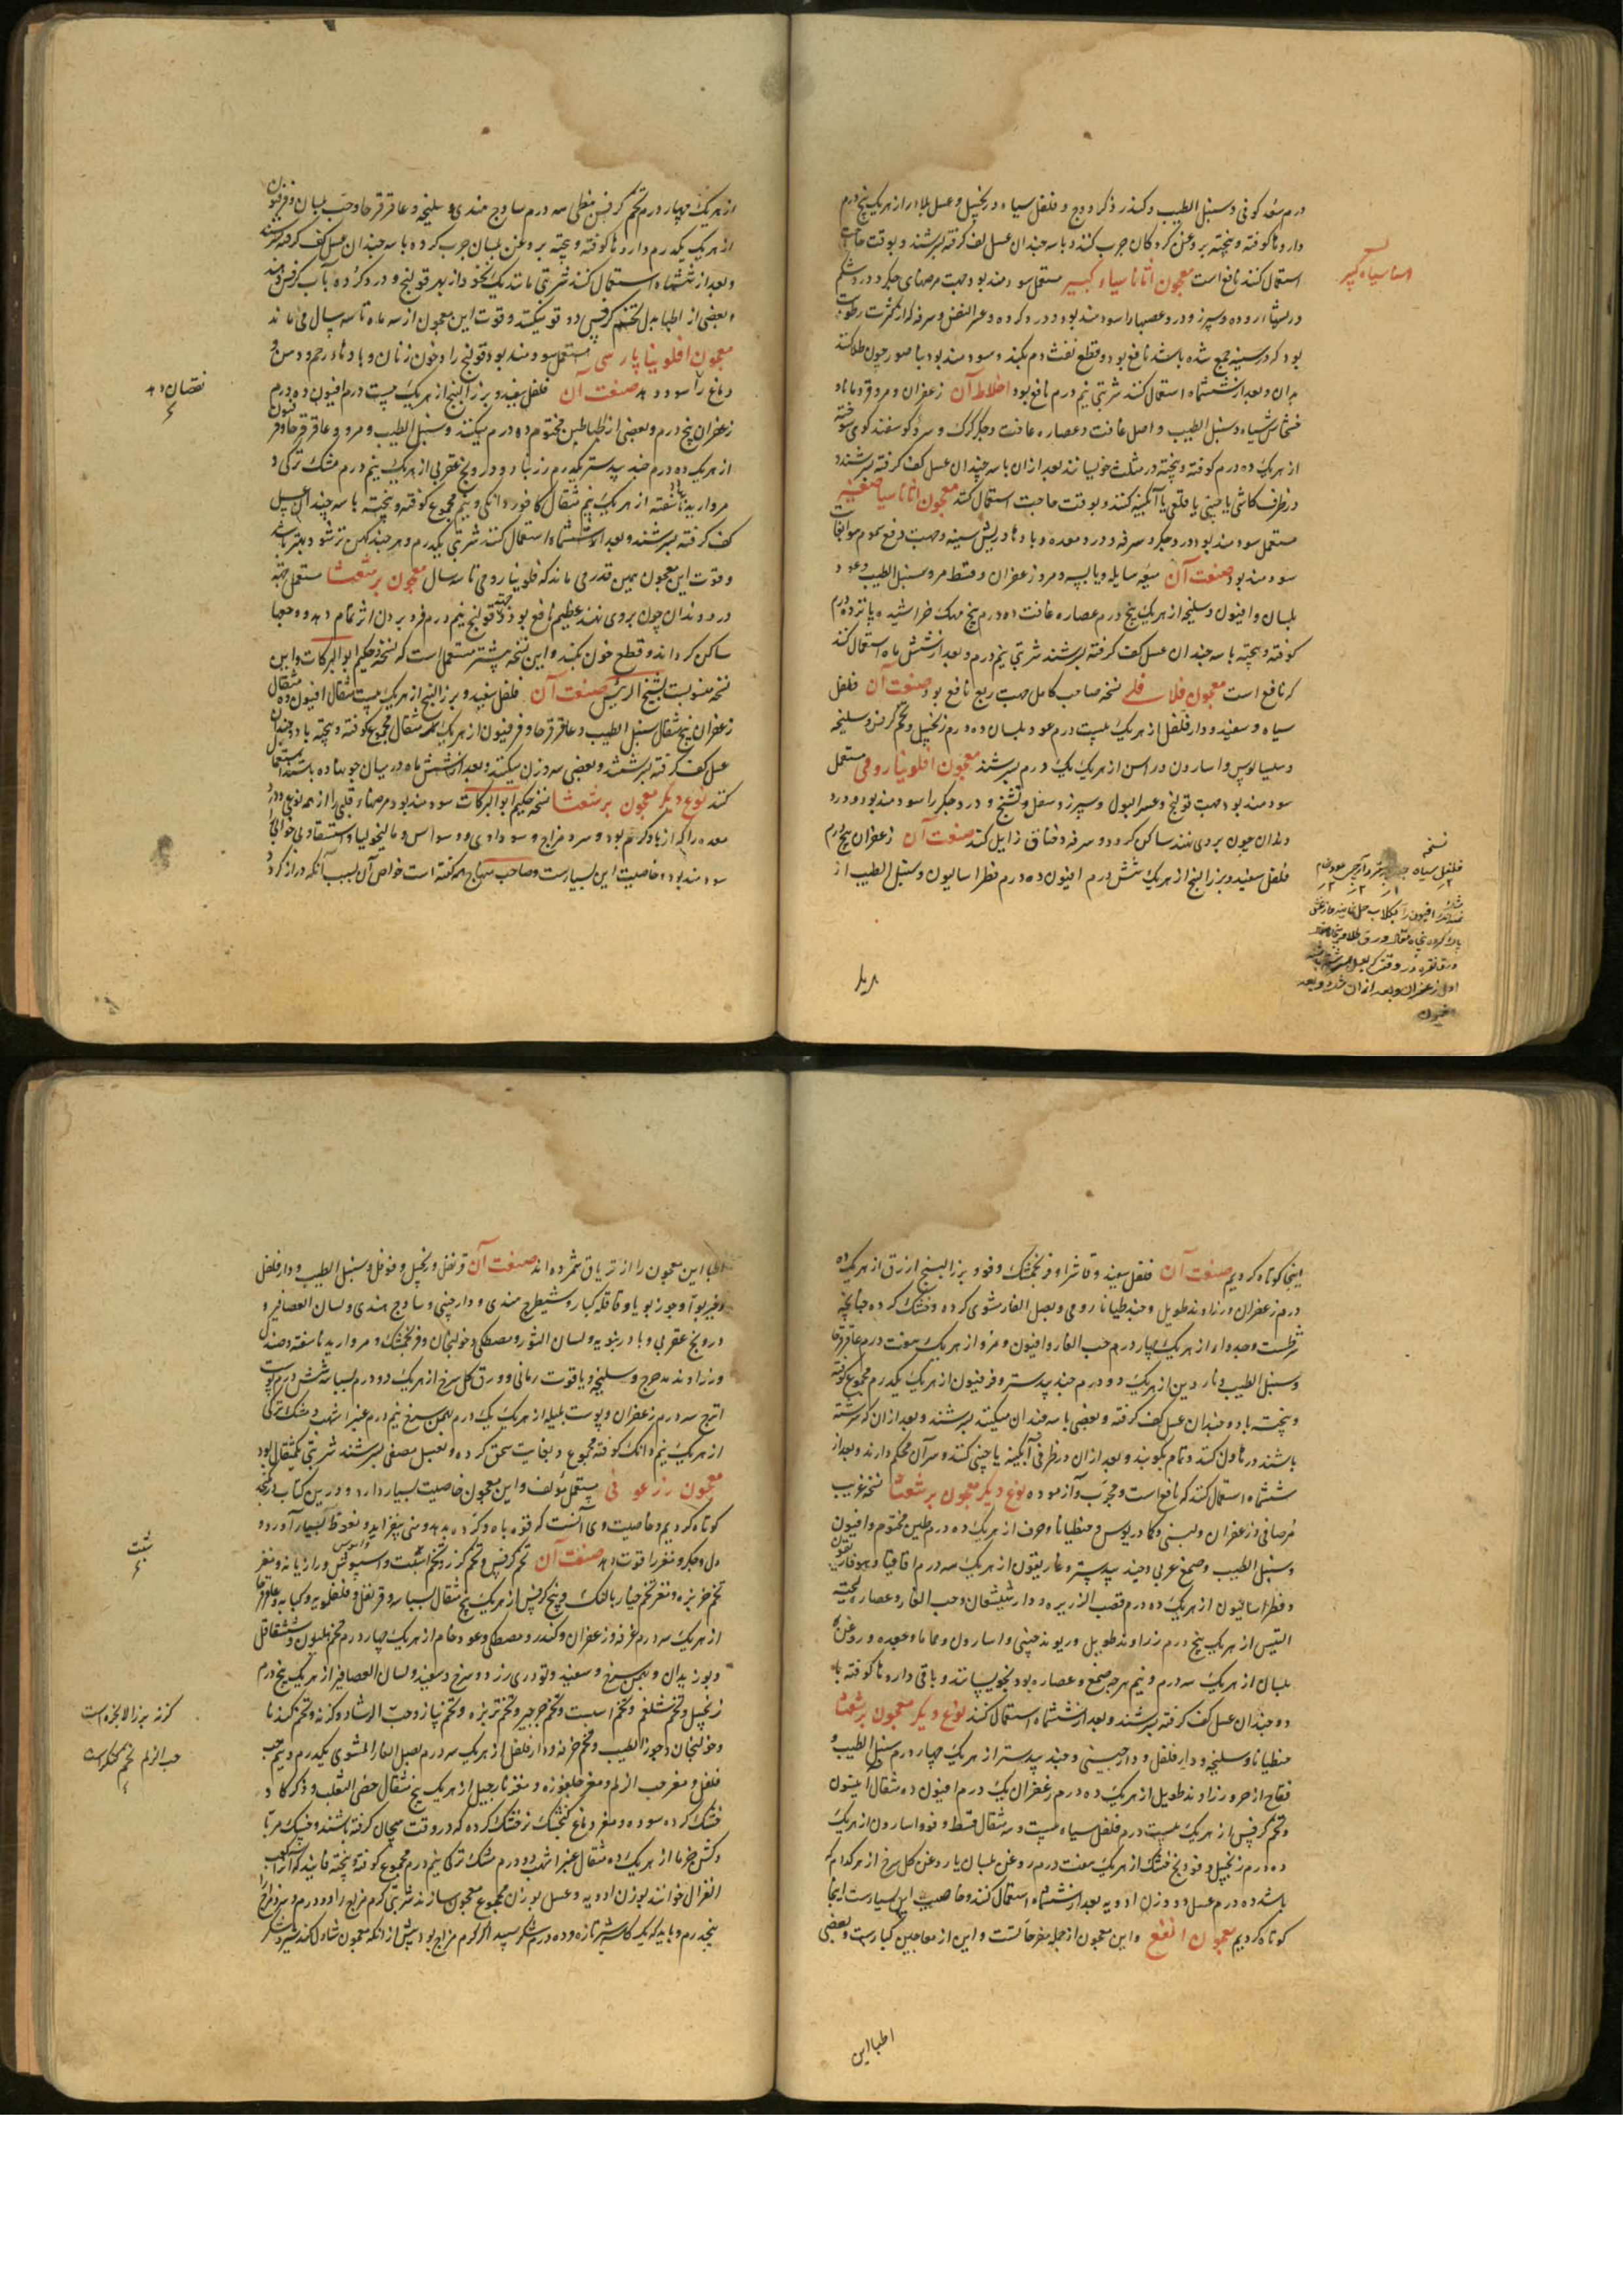 درم سعد کوفی و سنبل الطیب و کندر ذکر و وج و فلفل سیاه و زنجپیل و عسل بلادر از هریک پنج درم
داروها کوفته و پیخته بروغن کردکان چرب کنند و با سه چندان عسل کف گرفته بسرشند و بوقت حاجت
استعمال کنند نافع است معجون اثاناسیاء کبیر مستعمل سودمند بود جهت مرضهای جگر و درد شکم
و سپرز و درد عصبها را سودمند بود و درد کرده و عسر النفس و سرفه که از کثرت رطوبت
بود که در سینه جمع شده باشد نافع بود و قطع نفث دم بکند و سود مند بود بناصور چون طلا کنند
بدان و بعد از ششماه استعمال کنند شربتی نیم درم نافع بود اخلاط آن زعفران و مر و قردمانا و
خشخاش سیاه و سنبل الطیب و اصل غافت و عصاره غافت و جگر کرک و سرو کوسفند کوهی سوخته
از هریک ده درم کوفته و پیخته در مثلث خویسانند بعد ازان با سه چندان عسل کف گرفته بسرشند و
در ظرف کاشی یا چینی یا قلعی یا آبکینه کنند و بوقت حاجت استعمال کنند معجون اثاناسیا صغیر
مستعمل سودمند بود درد جگر و سرفه و درد معده و بادها و ریش سینه و جهت دفع سموم
سودمند بود صنعت آن میعه سایله و یابسه و مر و زعفران و قسط مر و سنبل الطیب و عود
بلسان و افیون و سلیخه از هریک پنج درم عصاره غافت ده درم بیخ مهک خراشیده پانزده درم
کوفته و پیخته با سه چندان عسل کف گرفته بسرشند شربتی نیم درم و بعد از شش ماه استعمال کنند
که نافع است معجون فلافلی نسخه صاحب کامل جهت ربع نافع بود صنعت آن فلفل
سیاه و سفید و دارفلفل از هریک بیست درم عود بلسان ده درم زنجپیل و تخم کرفس و سلیخه
و سیسالیوس و اسارون و راسن از هریک یک درم بسرشند معجون افلونیا رومی مستعمل
سودمند بود جهت قولنج و عسر البول و سپرز و سعال و تشنج و درد جگر را سودمند بود و درد
دندان چون بروی نهند ساکن کرد و سرفه و خناق زایل کند صنعت آن زعفران پنج درم
فلفل سفید و بزر البنج از هریک شش درم افیون ده درم فطراسالیون و سنبل الطیب از
اثاناسیاه کبیر
نسخه
فلفل سیاه
افیون را بکلاب حل
اول زعفران و بعد ازان
افیون
از هریک چهار درم تخم کرفس نبطی سه درم ساذج هندی و سلیخه و عاقرقرحا و حب بلسان و فرفیون
از هریک یکدرم داروها کوفته و پیخته بروغن بلسان چرب کرده با سه چندان عسل کف گرفته بسرشند
و بعد از ششماه استعمال کنند شربتی مانند یک نخود از بهر قولنج و درد کرده بآب کرفس
و بعضی از اطبا بدل تخم کرفس دوقو میکنند و قوت این معجون از سه ماه تا سه سال می ماند
معجون افلونیا پارسی مستعمل سودمند بود قولنج را و خون زنان و بادهاء رحم و دس و
دماغ را سود دهد صنعت آن فلفل سفید و بزر البنج از هریک بیست درم افیون ده درم
زعفران پنج درم و بعضی از اطبا طین مختوم ده درم میکنند و سنبل الطیب و مر و عاقرقرحا و فرفیون
از هریک ده درم جند بیدستر یکدرم زرنباد و درونج عقربی از هریک نیم درم مشک ترکی و
مروارید ناسفته از هریک نیم مثقال کافور دانکی و نیم مجموع کوفته و پیخته با سه چندان عسل
کف گرفته بسرشند و بعد از ششماه استعمال کنند شربتی یکدرم و هرچند کهن تر شود بهتر باشد
و قوت این معجون همین قدر می ماند که فلونیا رومی تا سه سال معجون برشعثا مستعمل جهة
درد دندان چون بروی نهند عظیم نافع بود و قولنج نیم درم فرو بردن اثر تمام دهد و وجعها
ساکن کرداند و قطع خون بکند و این نسخه پیشتر مستعمل است که نسخه حکیم ابوالبرکات و این
نسخه منسوبست بشیخ الرئیس صنعت آن فلفل سفید و بزر البنج از هریک بیست مثقال افیون ده مثقال
زعفران پنج مثقال سنبل الطیب و عاقرقرحا و فرفیون از هریک مثقال مجموع کوفته و پیخته با دو چندان
عسل کف گرفته بسرشند و بعضی سه وزن میکنند و بعد از شش ماه در میان جو نهاده باشند استعمال
کنند نوع دیگر معجون برشعثا نسخه حکیم ابوالبرکات سودمند بود مرضهاء قلبی را از همه نوعی و درد
معده را که از باد کرم بود و سرد مزاج و سوداوی و وسواس و مالیخولیا و استسقا و بی خوابی
سودمند بود و خاصیت این بسیارست و صاحب منهاج گفته است خواص آن بسبب آنکه دراز کرد
نقصان دهد
اینجا کوتاه کردیم صنعت آن فلفل سفید و فاشرا و فرنجمشک و فوو بزر البنج ازرق از هریک ده
درم زعفران و زراوند طویل و جنطیانا رومی و بصل الفار مشوی کرده و خشک کرده چنانچه
شرطست و جدوار از هریک چهار درم حب الغار و افیون و مر از هریک هفت درم عاقرقرحا
و سنبل الطیب و ناردین از هریک دو درم جند بیدستر و فرفیون از هریک یکدرم مجموع کوفته
و پیخته با دو چندان عسل کف گرفته و بعضی با سه چندان میکنند بسرشند و بعد ازان که سرشته
باشند در هاون کنند و تمام بکوبند و بعد ازان در ظرفی آبکینه یا چینی کنند و سر آن محکم دارند و بعد از
ششماه استعمال کنند که نافع است و مجرب و آزموده نوع دیگر معجون برشعثا نسخه غریب
مرصافی و زعفران و لبنی و کمادریوس و جنطیانا و حرف از هریک ده درم طین مختوم و افیون
و سنبل الطیب و صمغ عربی و جند بیدستر و غاریقون از هریک سه درم اقاقیا و هوفاریقون
و فطراسالیون از هریک ده درم قصب الذریره و دارشیشعان و حب الغار و عصاره لحیة
التیس از هریک پنج درم زراوند طویل و ریوند چینی و اسارون و حماما و جعده و روغن
بلسان از هریک سه درم و نیم هرچه صمغ و عصاره بود بخویسانند و باقی داروها کوفته با
دو چندان عسل کف گرفته بسرشند و بعد از ششماه استعمال کنند نوع دیگر معجون برشعثا
جنطیانا و سلیخه و دارفلفل و دارچینی و جند بیدستر از هریک چهار درم سنبل الطیب و
فقاح اذخر و زراوند طویل از هریک ده درم زعفران یک درم افیون ده مثقال انیسون
و تخم کرفس از هریک بیست درم فلفل سیاه بیست و سه مثقال قسط و فوو اسارون از هریک
ده درم زنجپیل و فودنج خشک از هریک هفت درم روغن بلسان یا روغن کل سرخ از هرکدام که
باشد ده درم عسل دو وزن ادویه بعد از ششماه استعمال کنند و خاصیت این بسیارست اینجا
کوتاه کردیم معجون انفع و این معجون از جمله مفرحاتست و این از معاجین کبارست و بعضی
اطبا این
اطبا این معجون را از تریاق شمرده اند صنعت آن قرنفل و زنجپیل و فوفل و سنبل الطیب و دارفلفل
و خیربوا و جوزبویا و قاقله کبار و شیطرج هندی و دارچینی و ساذج هندی و لسان العصافیر و
درونج عقربی و بادرنبویه و لسان الثور و مصطکی و خولنجان و فرنجمشک و مروارید ناسفته و صندل
و زراوند مدحرج و سلیخه و یاقوت رمانی و ورق کل سرخ از هریک دو درم بسباسه شش درم پوست
اترج سه درم زعفران و پوست هلیله از هریک یک درم بهمن سرخ نیم درم عنبر اشهب و مشک ترکی
از هریک نیم دانک کوفته مجموع و بغایت سحق کرده و بعسل مصفی بسرشند شربتی یکمثقال بود
معجون زرعونی مستعمل مؤلف و این معجون خاصیت بسیار دارد و درین کتاب
کوتاه کردیم و خاصیت وی آنست که قوه باه و کرده بدهد و منی بیفزاید و نعوظ بسیار آورد و
دل و جگر و مغز را قوت دهد صنعت آن تخم کرفس و تخم گزر و تخم اسپست و اسپیوس و رازیانه و مغز
تخم خربزه و مغز تخم خیار بالنک و بیخ کرفس از هریک پنج مثقال بسباسه و قرنفل و فلفلمویه و کبابه و عاقرقرحا
از هریک سه درم قرفه و زعفران و کندر و مصطکی و عود خام از هریک چهار درم تخم هلیون و شقاقل
و بوزیدان و بهمن سرخ و سفید و تودری زرد و سرخ و سفید و لسان العصافیر از هریک پنج درم
زنجپیل و تخم شلغم و تخم اسپست و تخم جرجیر و تخم تربزه و تخم پیاز و حب الرشاد و کزنه و تخم کندنا
و خولنجان و جوز الطیب و تخم خرفه و دارفلفل از هریک سه درم بصل الفار المشوی یکدرم و نیم حب
فلفل و مغز حب الزلم و مغز جلغوزه و مغز نارجیل از هریک پنج مثقال خصی الثعلب و ذکر کاو
خشک کرده سوده و مغز دماغ کنجشک نر خشک کرده که در وقت هیجان گرفته باشند و خسک مربا
و کشن خرما از هریک ده مثقال عنبر اشهب دو درم مشک ترکی نیم درم مجموع کوفته و پیخته
الغزال خوانند بوزن ادویه و عسل بوزن مجموع معجون سازند شربتی کرم مزاج را دو درم و سرد مزاج را
پنجدرم و باید که یک کاسه شیر تازه و ده درم شکر سپید اگر کرم مزاج بود پیش از آنکه معجون تناول کند
شبت
کزنه بزر الانجره است
حب الزلم